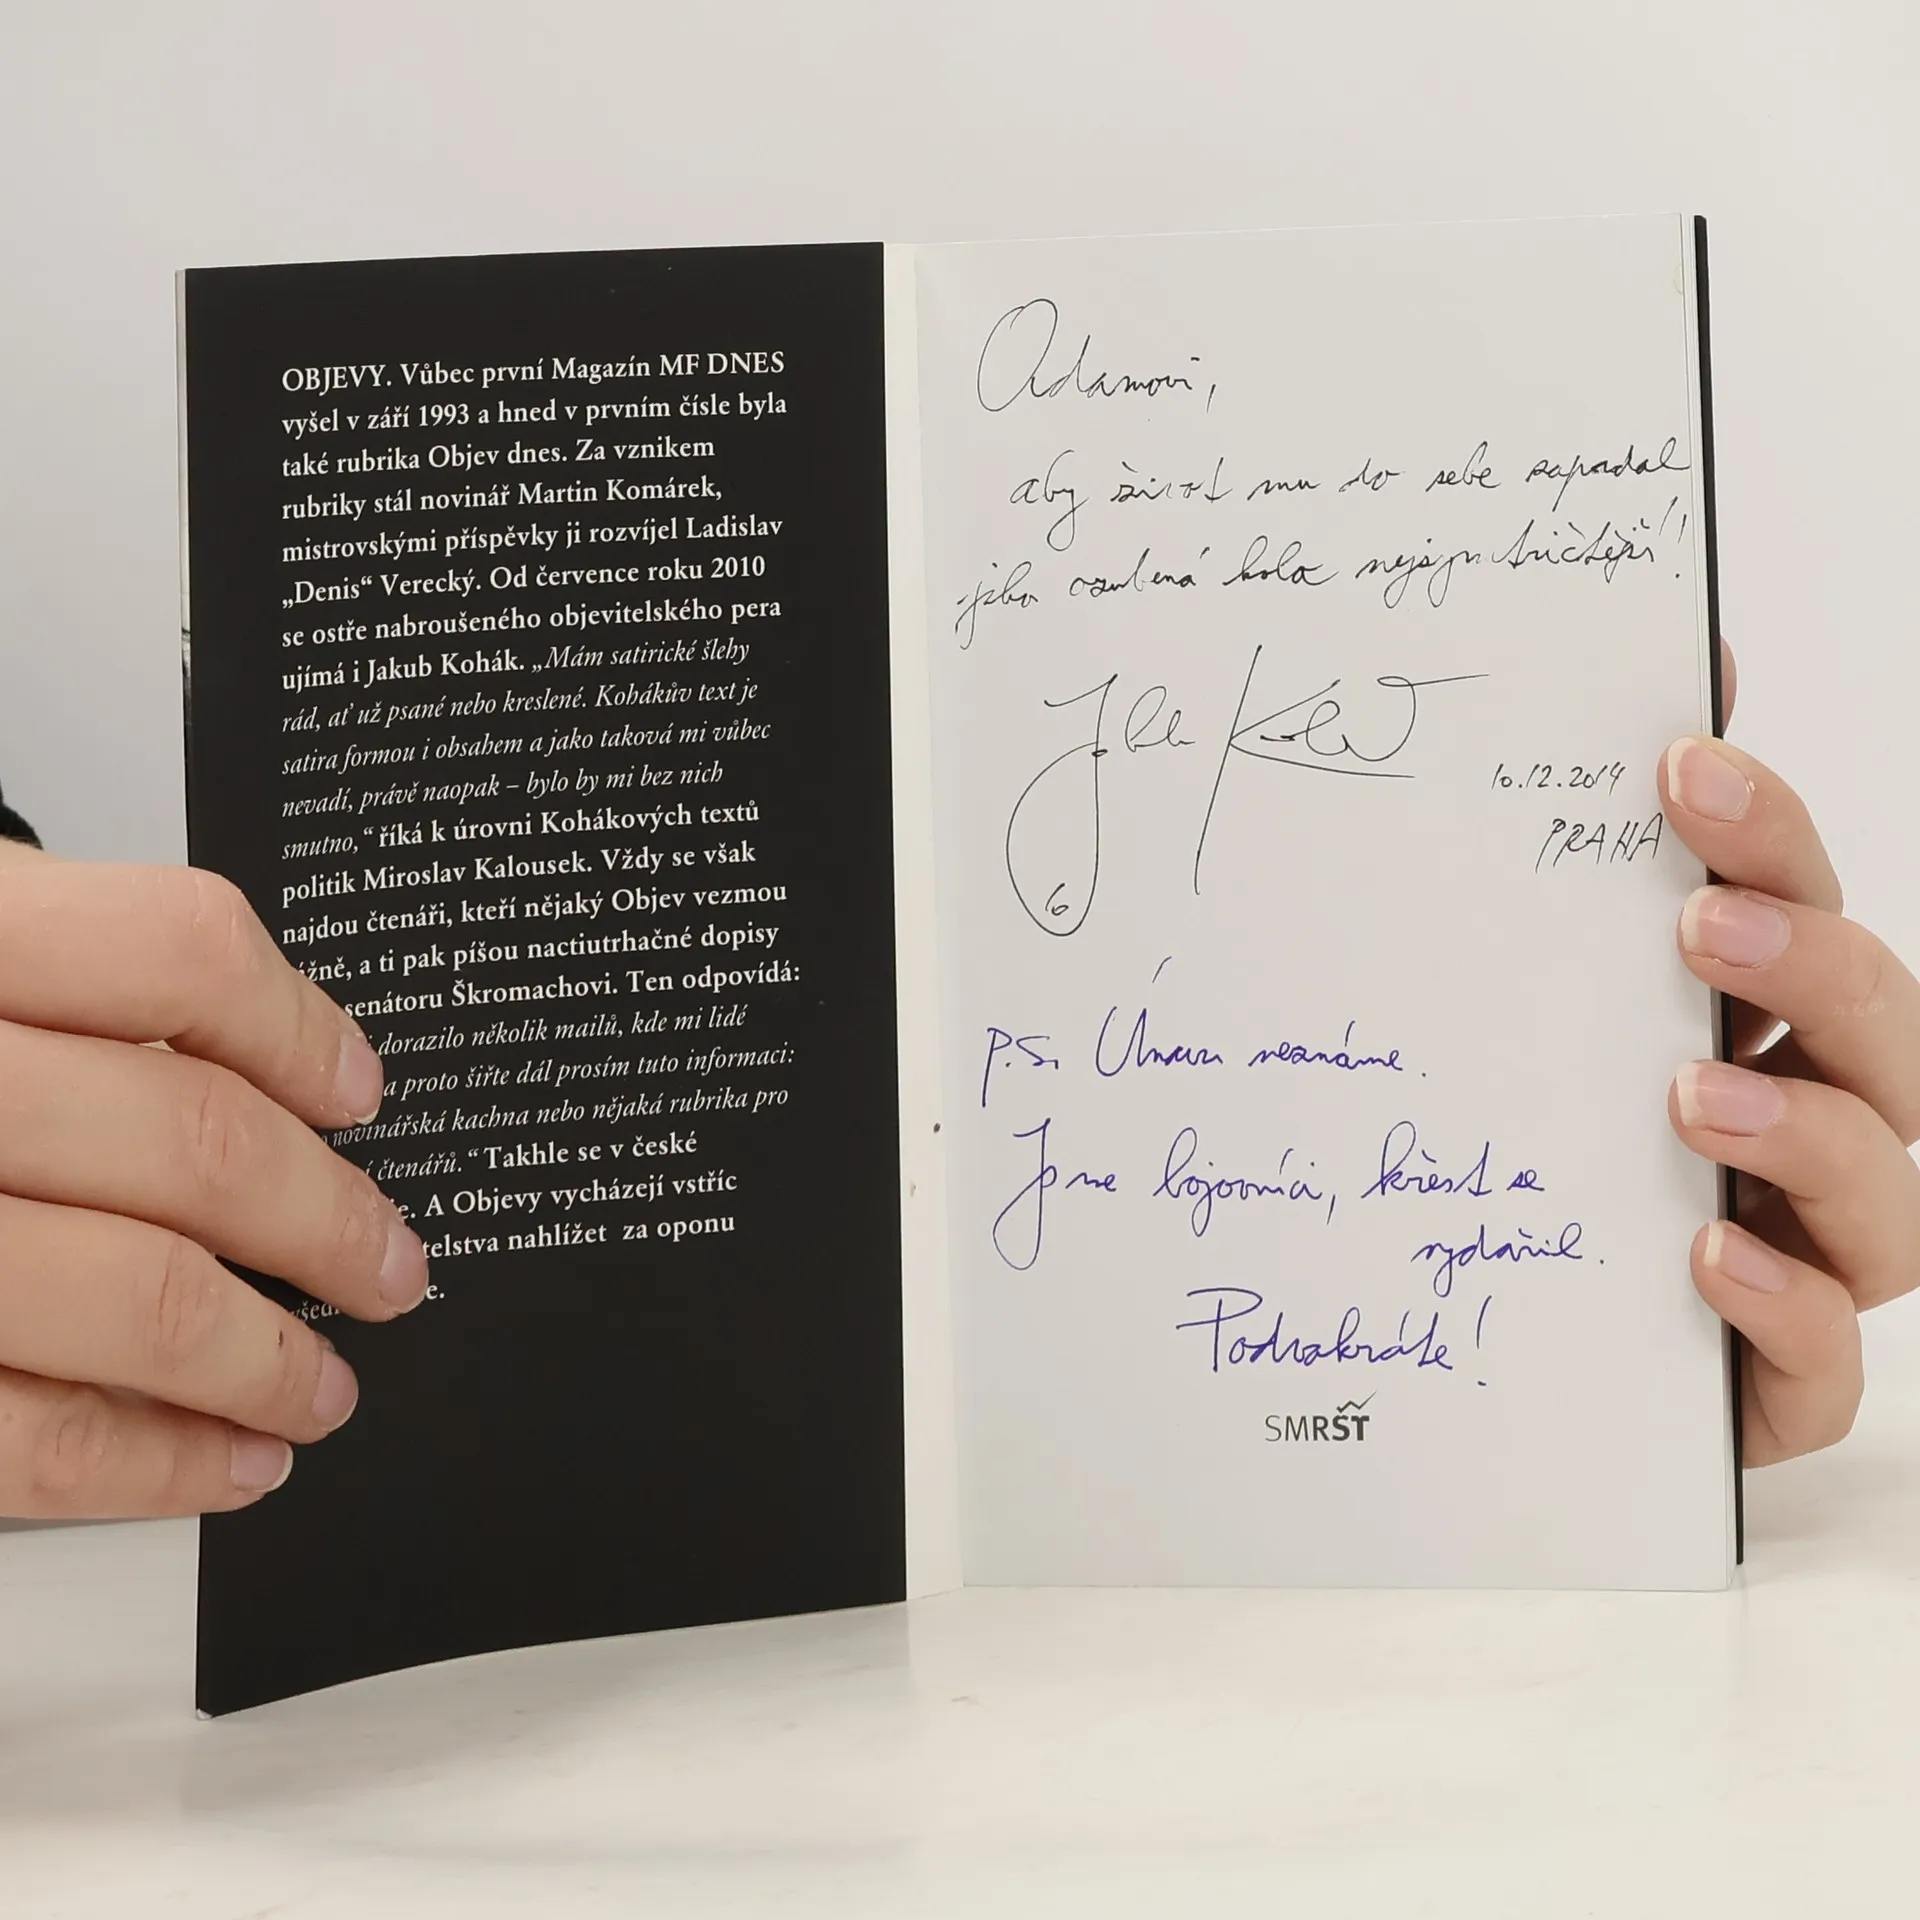 OBJEVY. Vůbec první Magazín MF DNES
vyšel v září 1993 a hned v prvním čísle byla
také rubrika Objev dnes. Za vznikem
rubriky stál novinář Martin Komárek,
mistrovskými příspěvky ji rozvíjel Ladislav
„Denis“ Verecký. Od července roku 2010
se ostře nabroušeného objevitelského pera
ujímá i Jakub Kohák. „Mám satirické šlehy
rád, ať už psané nebo kreslené. Kohákův text je
satira formou i obsahem a jako taková mi vůbec
nevadí, právě naopak – bylo by mi bez nich
smutno,“ říká k úrovni Kohákových textů
politik Miroslav Kalousek. Vždy se však
najdou čtenáři, kteří nějaký Objev vezmou
a ti pak píšou nactiutrhačné dopisy
senátoru Škromachovi. Ten odpovídá:
dorazilo několik mailů, kde mi lidé
a proto šiřte dál prosím tuto informaci:
novinářská kachna nebo nějaká rubrika pro
čtenářů.“ Takhle se v české
A Objevy vycházejí vstříc
nahlížet za oponu
Adamovi,
aby život mu do sebe zapadal
jako ozubená kola nejsym tričtější!
Jakub Kohák
10.12.2014
PRAHA
6
P.S. Únavu neznáme.
Jsme bojovníci, křest se
vydařil.
Podvakráte!
SMRŠŤ